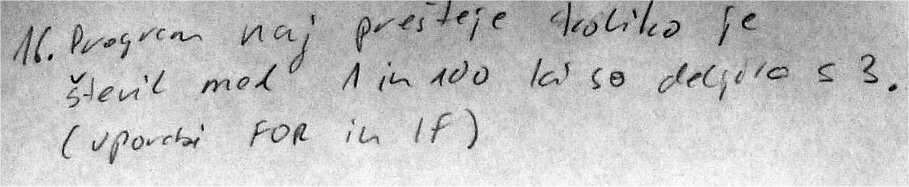 16. Program naj prešteje koliko je
števil med 1 in 100 ki so deljiva s 3.
(uporabi FOR in IF)